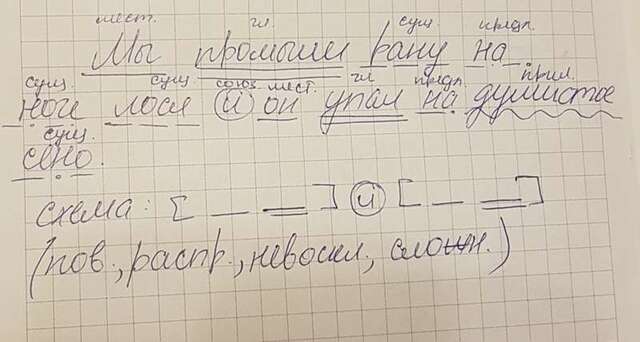 мест. гл. сущ. предл.
Мы промыли рану на
сущ. сущ. союз мест. гл предл. прил.
ноге лося и он упал на душистое
сущ.
сено.
схема: [ — = ] и [ — = ]
(пов., распр., невоскл., сложн.)